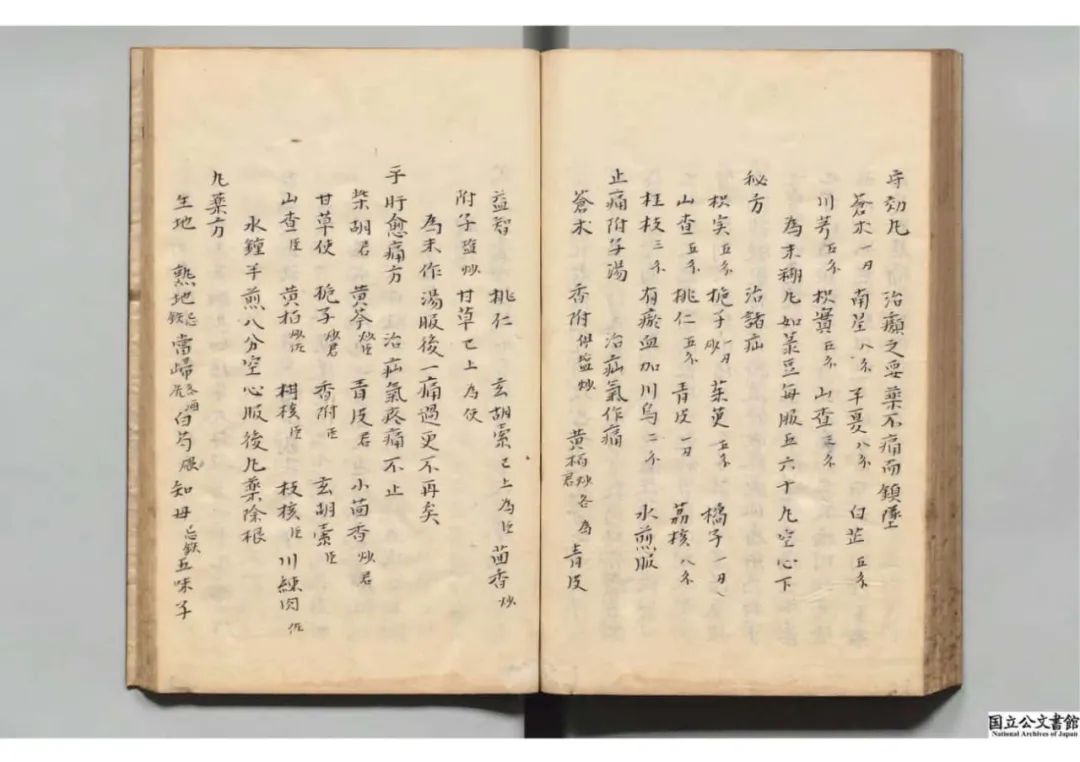 守効凡 治癲之要薬不痛而鎮墜
蒼朮一両 南星八分 半夏八分 白芷五分
川芎五分 枳實五分 山查五分
為末糊凡如菉豆每服五六十凡空心下
秘方 治諸疝
枳实五分 梔子炒一両 茱萸五分 橘子一両
山查五分 桃仁五分 青皮一両 荔核八分
桂枝三分 有瘀血加川烏二分 水煎服
止痛附子湯 治疝氣作痛
蒼朮 香附俱盐炒 黄栢炒各為君 青皮
益智 桃仁 玄胡索已上為臣 茴香炒
附子盐炒 甘草已上為使
為末作湯服後一痛過更不再矣
乎肝愈痛方 治疝氣疼痛不止
柴胡君 黄芩炒臣 青皮君 小茴香炒君
甘草使 梔子炒君 香附臣 玄胡索臣
山查臣 黄栢炒佐 桂核臣 枝核臣 川練肉佐
水鐘半煎八分空心服後凡薬除根
凡薬方
生地 熟地忌鉄 當歸各酒洗 白芍煨 知母忌鉄 五味子
国立公文書館
National Archives of Japan